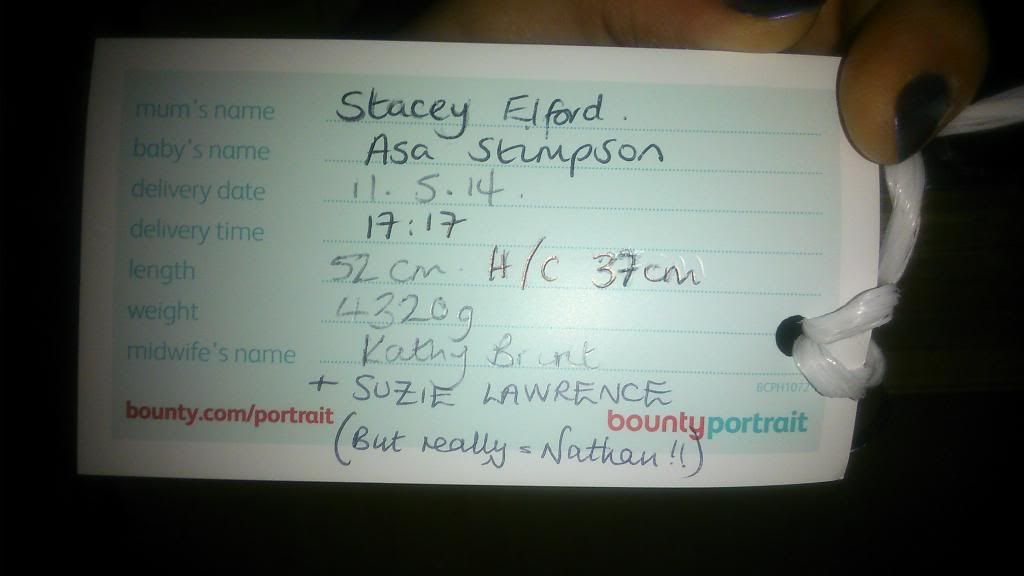 mum's name Stacey Elford.
baby's name Asa Stimpson
delivery date 11.5.14.
delivery time 17:17
length 52 cm. H/C 37cm
weight 4320g
midwife's name Kathy Brunt
+ SUZIE LAWRENCE
BCPH1072
bounty.com/portrait bountyportrait
(But really = Nathan !!)